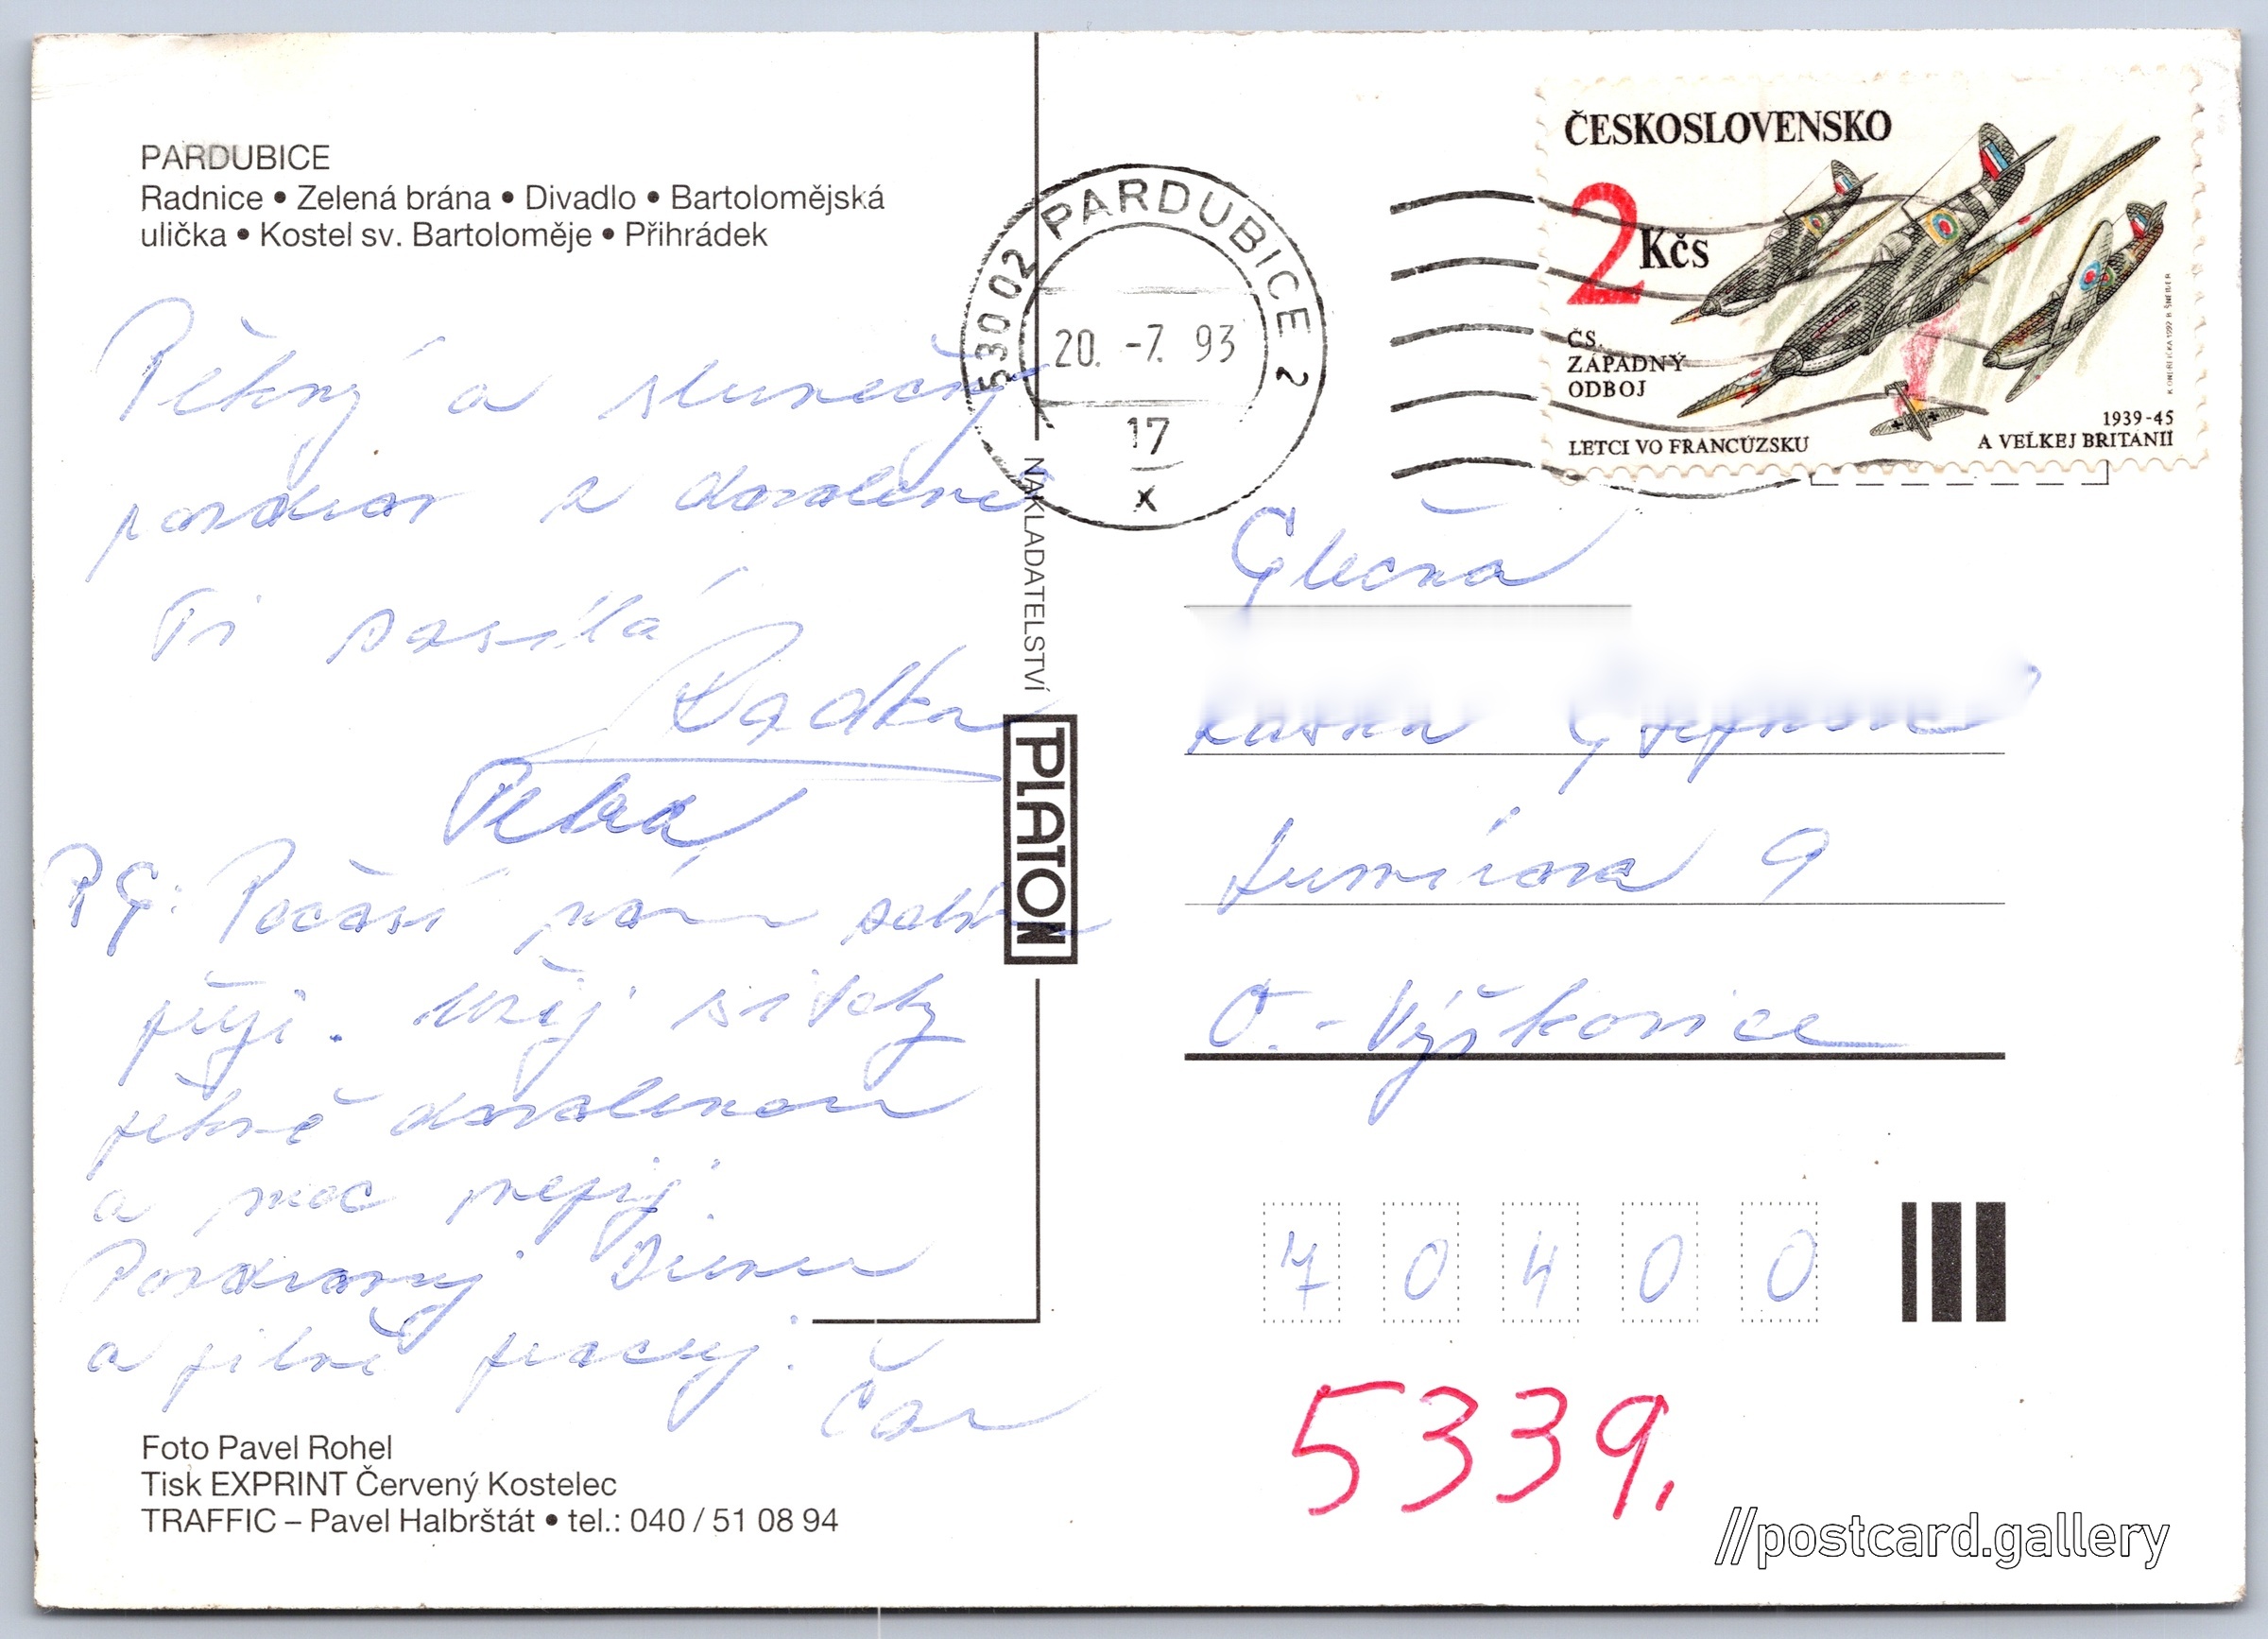 PARDUBICE
Radnice • Zelená brána • Divadlo • Bartolomějská
ulička • Kostel sv. Bartoloměje • Přihrádek
Pěkný a slunečný
pozdrav z dovolené
Ti posílá
Radka
Petra
PS: Počasí nám
přeji. Užij si taky
pěkně dovolenou
a moc nepij.
Pozdravuj
a pilně pracuj.
Čau
Foto Pavel Rohel
Tisk EXPRINT Červený Kostelec
TRAFFIC – Pavel Halbrštát • tel.: 040 / 51 08 94
NAKLADATELSTVÍ
PLATON
53002 PARDUBICE 2
20. -7. 93
17
x
ČESKOSLOVENSKO
2 Kčs
ČS.
ZÁPADNÝ
ODBOJ
1939-45
LETCI VO FRANCÚZSKU A VEĽKEJ BRITÁNII
Slečna
9
O.-Výškovice
70400
5339.
//postcard.gallery